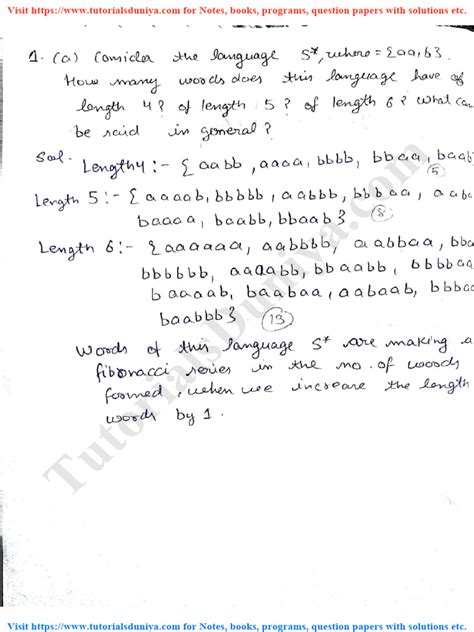 Visit https://www.tutorialsduniya.com for Notes, books, programs, question papers with solutions etc.
1. (a) Consider the language S*, where = {aa, b}.
How many words does this language have of
length 4? of length 5? of length 6? What can
be said in general?
Sol. Length 4 :- {aabb, aaaa, bbbb, bbaa, baab}
5
Length 5 :- {aaaab, bbbbb, aabbb, bbbaa, aaba
baaaa, baabb, bbaab} 8
Length 6 :- {aaaaaa, aabbbb, aabbaa, bba
bbbbbb, aaaabb, bbaabb, bbbbaa
baaaab, baabaa, aabaab, bbba
baabbb} 13
Words of this language S* are making a
fibonacci series in the no. of words
formed, when we increase the length
words by 1.
TutorialsDuniya.com
Visit https://www.tutorialsduniya.com for Notes, books, programs, question papers with solutions etc.